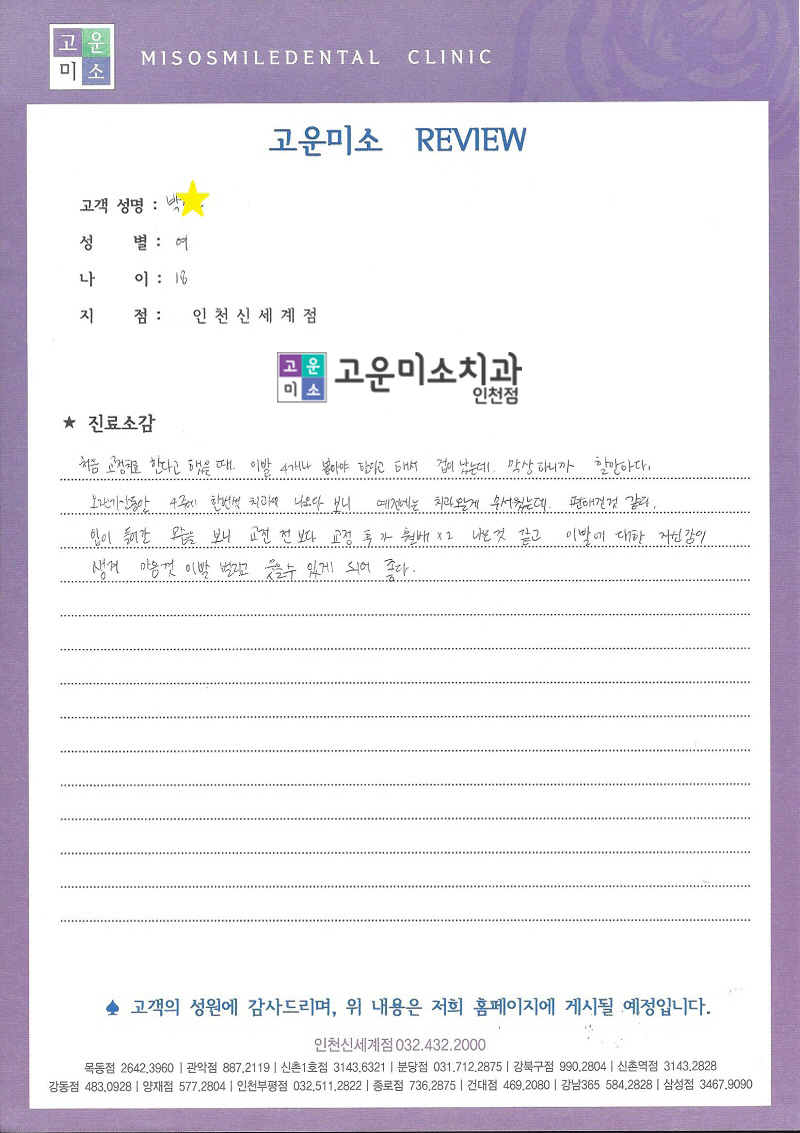 고운
미소
MISOSMILEDENTAL CLINIC
고운미소 REVIEW
고객 성명 : 박
성 별 : 여
나 이 : 18
지 점 : 인천신세계점
고운
미소
고운미소치과
인천점
★ 진료소감
처음 교정치료 한다고 했을 때. 이빨 4개나 뽑아야 한다고 해서 겁이 났는데. 막상 하니까 할만하다.
오랜기간동안 4주에 한번씩 치과에 나오다 보니 예전에는 치과오는게 무서웠는데. 편해진것 같다.
입이 들어간 모습을 보니 교정 전 보다 교정 후 가 훨배 x2 나은것 같고 이빨에 대한 자신감이
생겨 마음껏 이빨 벌리고 웃을수 있게 되어 좋다.
♠ 고객의 성원에 감사드리며, 위 내용은 저희 홈페이지에 게시될 예정입니다.
인천신세계점032.432.2000
목동점 2642.3960 | 관악점 887.2119 | 신촌1호점 3143.6321 | 분당점 031.712.2875 | 강북구점 990.2804 | 신촌역점 3143.2828
강동점 483.0928 | 양재점 577.2804 | 인천부평점 032.511.2822 | 종로점 736.2875 | 건대점 469.2080 | 강남365 584.2828 | 삼성점 3467.9090